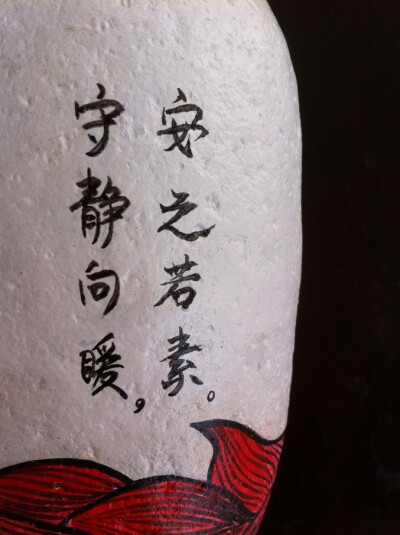 守静向暖，
安之若素。